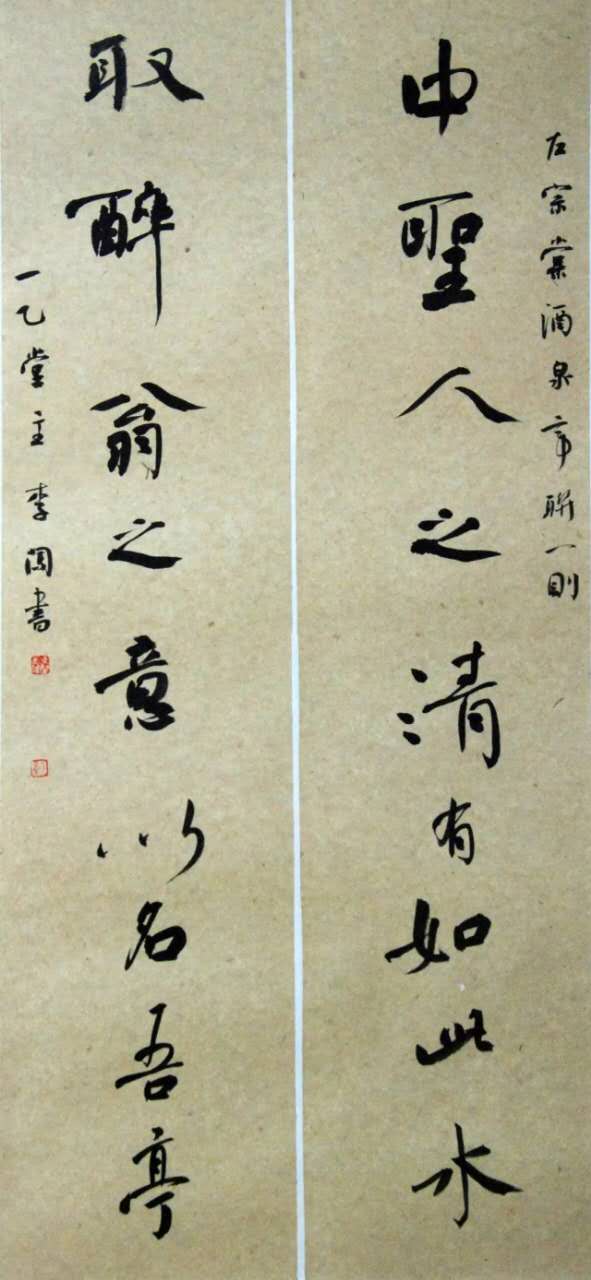 左宗棠酒泉亭聯一則
中聖人之清有如此水
取醉翁之意以名吾亭
一乙堂主李書